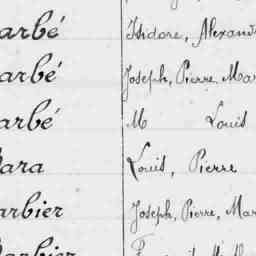 arbé Isidore, Alexand
arbé Joseph, Pierre, Mar
arbé M Louis
Bara Louis, Pierre
arbier Joseph, Pierre, Mar
Barbier